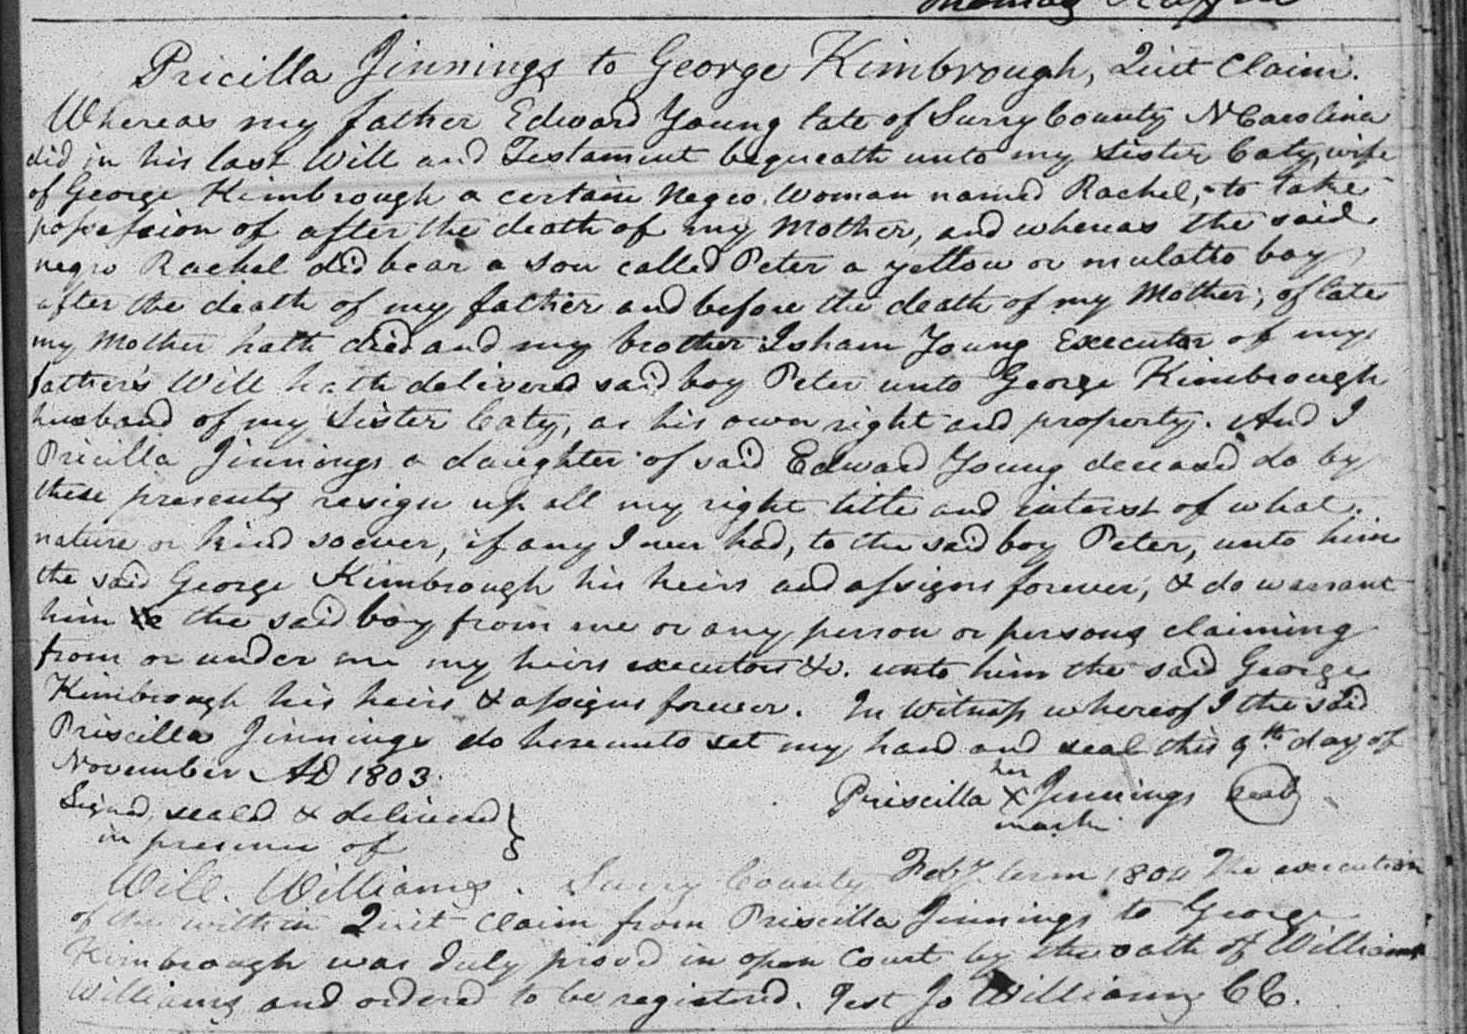 Pricilla Jinnings to George Kimbrough, Quit Claim.
Whereas my father Edward Young late of Surry County N Carolina
did in his last Will and Testament bequeath unto my sister Caty, wife
of George Kimbrough a certain negro woman named Rachel, to take
possession of after the death of my Mother, and whereas the said
negro Rachel did bear a son called Peter a yellow or mulatto boy
after the death of my father and before the death of my Mother; of late
my Mother hath died and my brother Isham Young Executor of my
father's Will hath delivered said boy Peter unto George Kimbrough
husband of my sister Caty, as his own right and property. And I
Pricilla Jinnings a daughter of said Edward Young deceased do by
these presents resign up all my right title and interest of what
nature or kind soever, if any I ever had, to the said boy Peter, unto him
the said George Kimbrough his heirs and assigns forever, & do warrant
him the said boy from me or any person or persons claiming
from or under me my heirs executors &c. unto him the said George
Kimbrough his heirs & assigns forever. In Witness whereof I the said
Priscilla Jinnings do hereunto set my hand and seal this 9th day of
November AD 1803.
Priscilla her X mark Jinnings seal
Signed, sealed & delivered
in presence of
Will. Williams. Surry County Feby. term 1804 The execution
of the within Quit Claim from Priscilla Jinnings to George
Kimbrough was duly proved in open Court by the oath of William
Williams and ordered to be registered. Test Jo Williams CC.